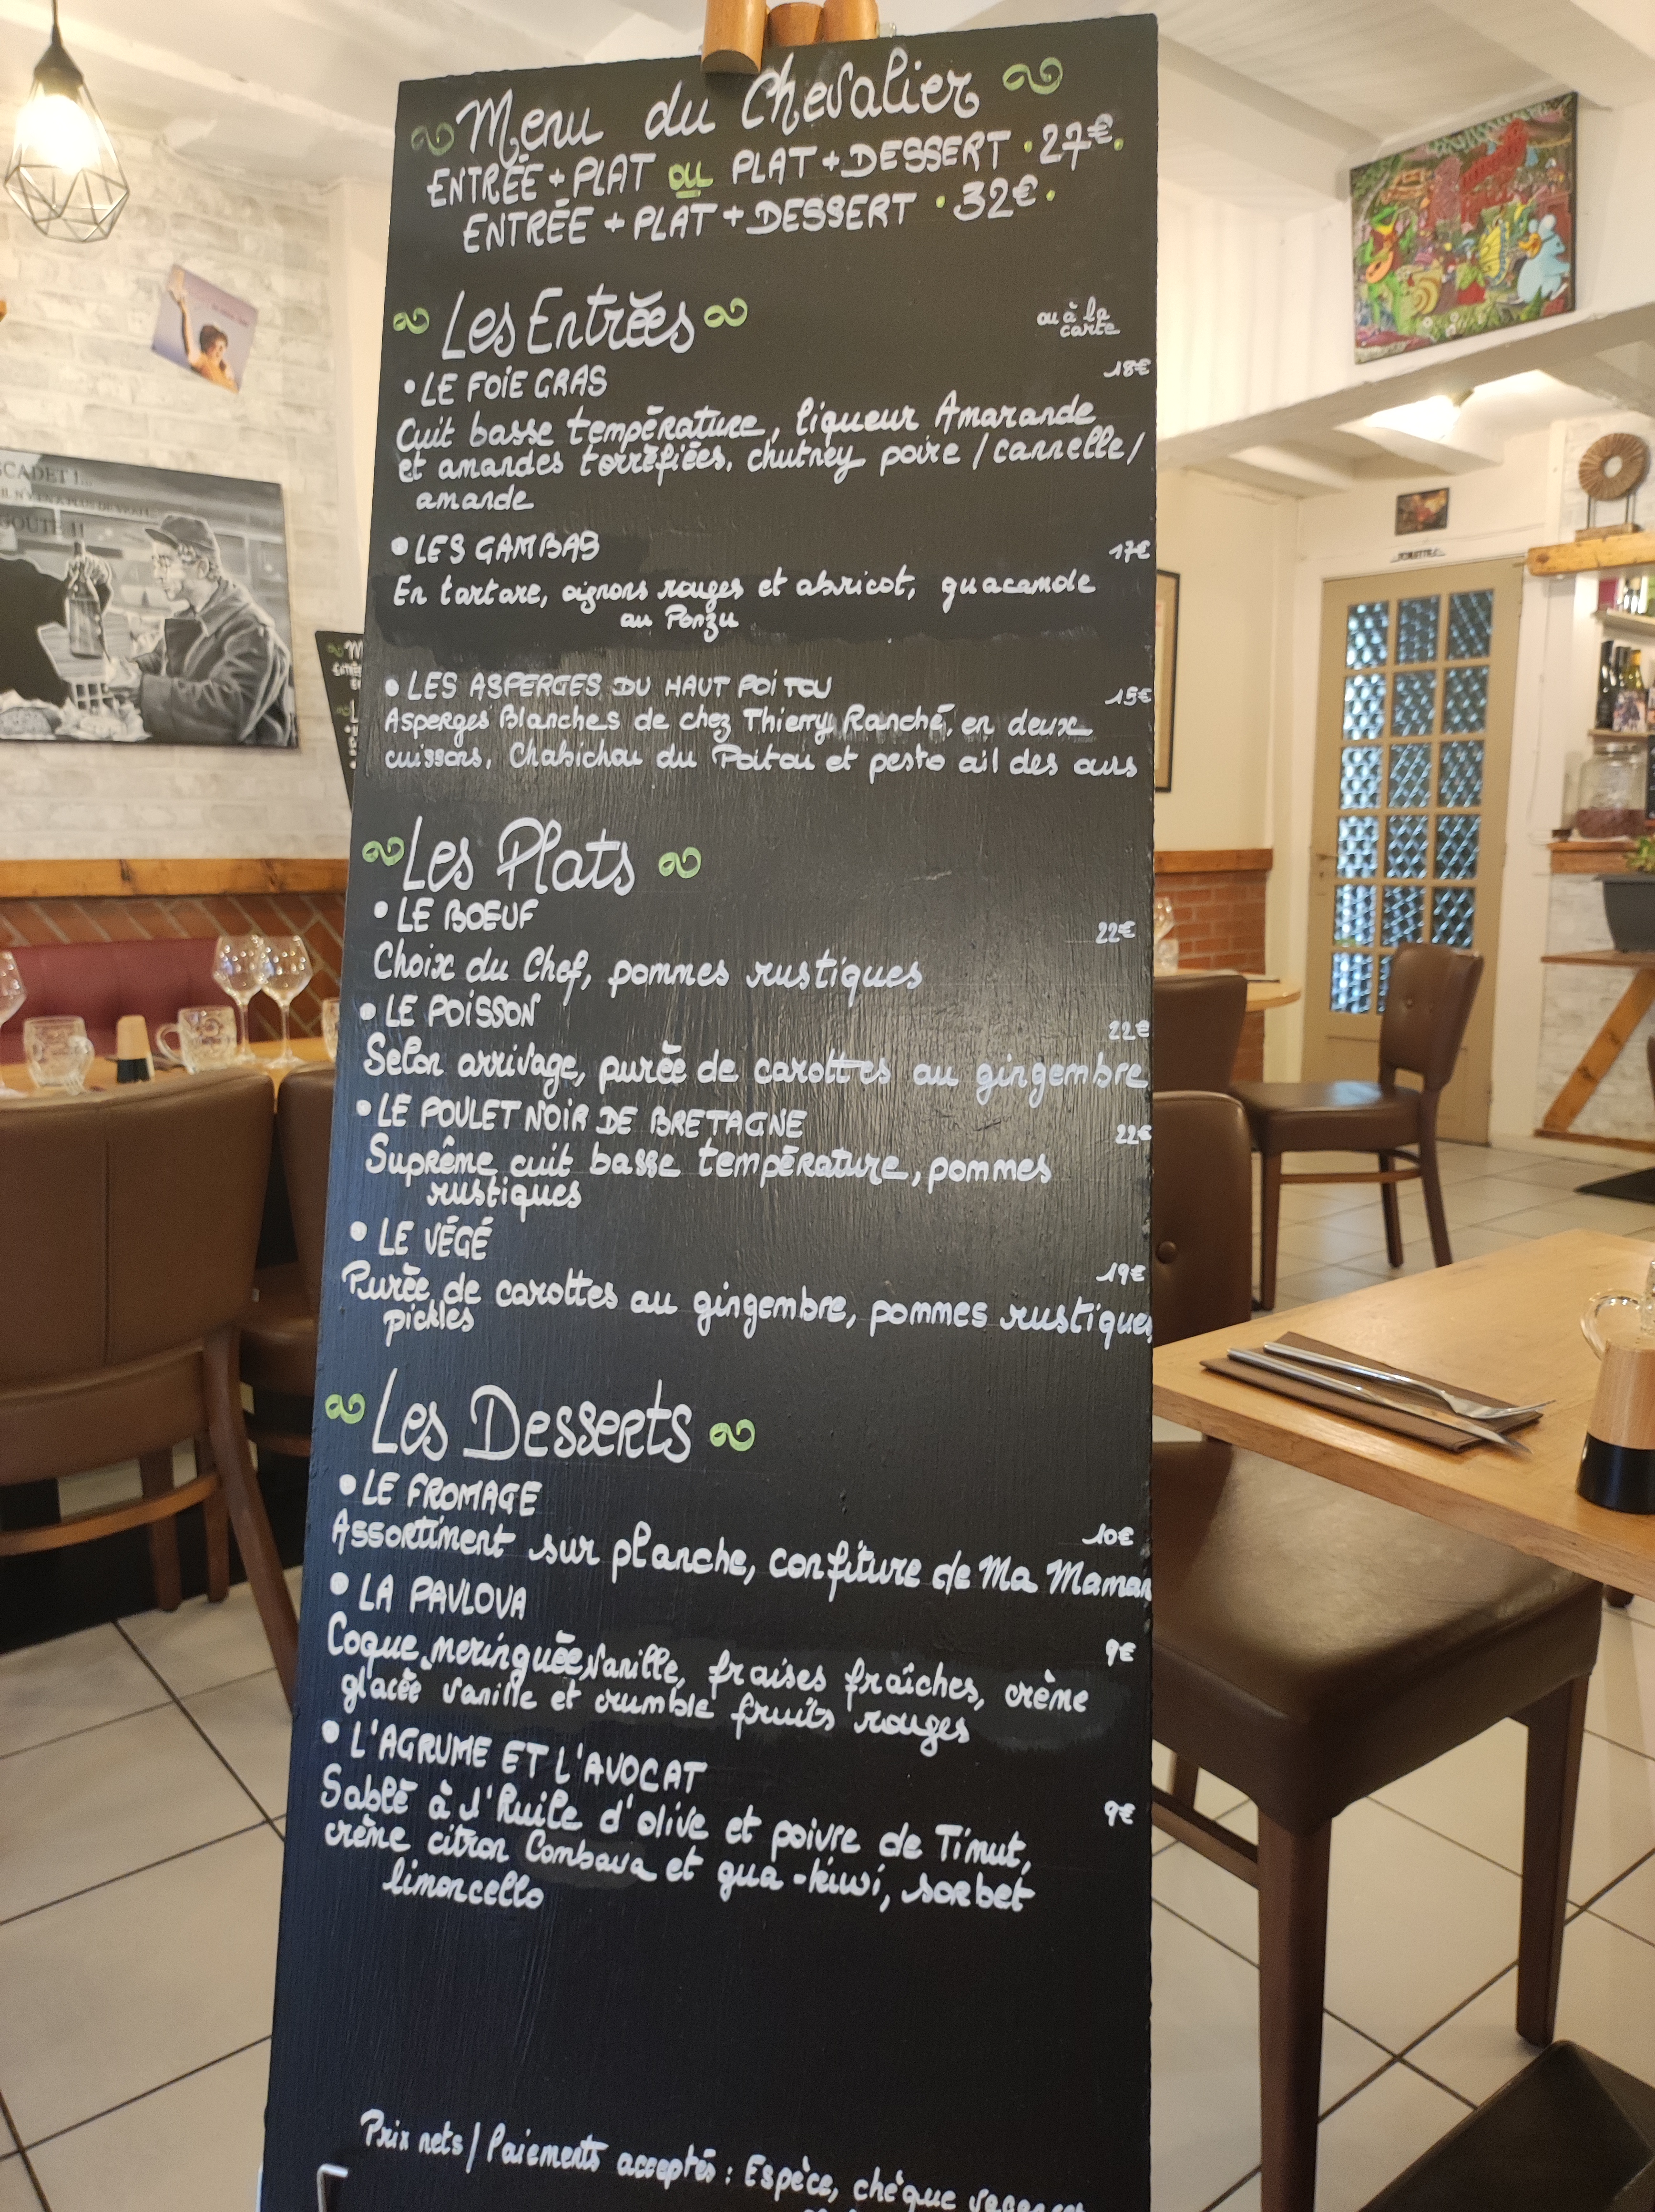 Menu du Chevalier
ENTRÉE + PLAT OU PLAT + DESSERT · 27€ ·
ENTRÉE + PLAT + DESSERT · 32€ ·
Les Entrées
ou à la
carte
• LE FOIE GRAS 18€
Cuit basse température, liqueur Amarande
et amandes torréfiées, chutney poire / cannelle /
amande
• LES GAMBAS 17€
En tartare, oignons rouges et abricot, guacamole
au Ponzu
• LES ASPERGES DU HAUT POITOU 15€
Asperges Blanches de chez Thierry Ranché, en deux
cuissons, Chabichou du Poitou et pesto ail des ours
Les Plats
• LE BOEUF 22€
Choix du Chef, pommes rustiques
• LE POISSON 22€
Selon arrivage, purée de carottes au gingembre
• LE POULET NOIR DE BRETAGNE 22€
Suprême cuit basse température, pommes
rustiques
• LE VÉGÉ 19€
Purée de carottes au gingembre, pommes rustiques
pickles
Les Desserts
• LE FROMAGE 10€
Assortiment sur planche, confiture de Ma Maman
• LA PAVLOVA 9€
Coque meringuée vanille, fraises fraîches, crème
glacée vanille et crumble fruits rouges
• L'AGRUME ET L'AVOCAT 9€
Sablé à l'huile d'olive et poivre de Timut,
crème citron Combava et gua-kiwi, sorbet
limoncello
Prix nets / Paiements acceptés : Espèce, chèque vacances
GOUTE !!